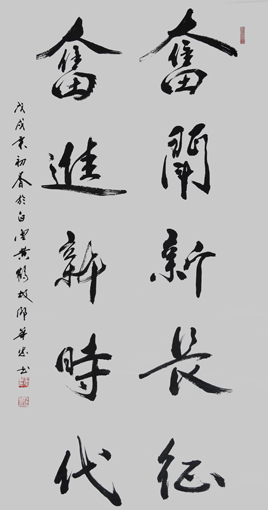 奮鬥新長征
奮進新時代
戊戌年初春於白雲黃鶴故
書